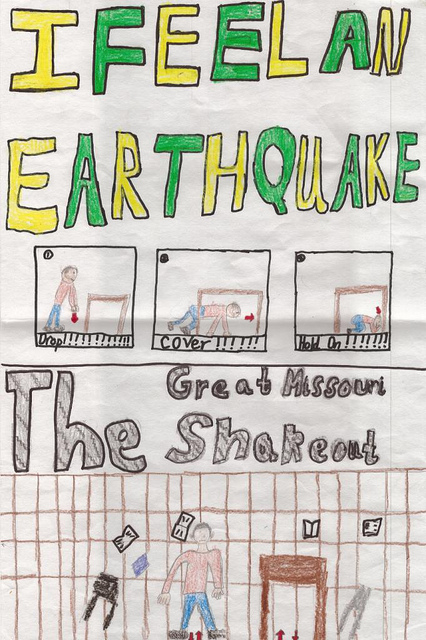 I FEEL AN
EARTHQUAKE
1
Drop!!!!!!!!!
cover!!!!!!
Hold On!!!!!!
The Great Missouri
Shakeout